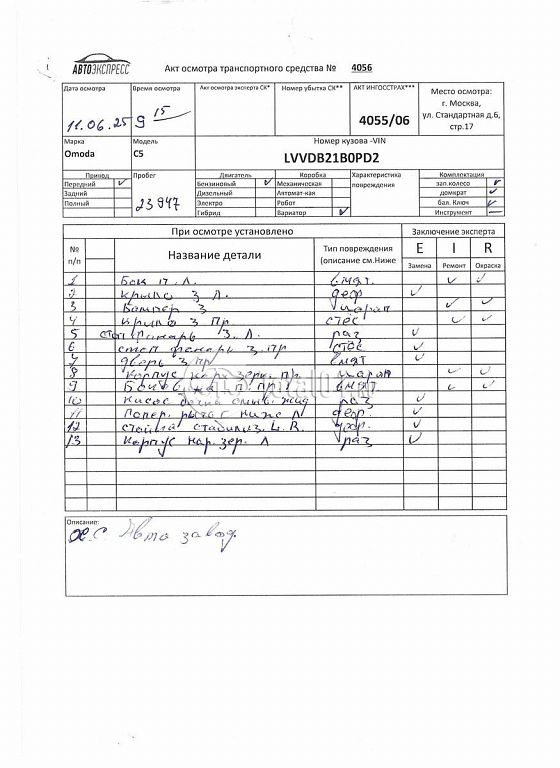 АВТОЭКСПРЕСС
Акт осмотра транспортного средства № 4056
Дата осмотра
11.06.25
Время осмотра
9 15
Акт осмотра эксперта СК*
Номер убытка СК**
АКТ ИНГОССТРАХ***
4055/06
Место осмотра:
г. Москва,
ул. Стандартная д.6,
стр.17
Марка
Omoda
Модель
C5
Номер кузова -VIN
LVVDB21B0PD2
Привод
Передний ✓
Задний
Полный
Пробег
23947
Двигатель
Бензиновый ✓
Дизельный
Электро
Гибрид
Коробка
Механическая
Автомат-кая
Робот
Вариатор ✓
Характеристика
повреждения
Комплектация
зап.колесо ✓
домкрат ✓
бал. Ключ ✓
Инструмент —
При осмотре установлено
Заключение эксперта
№
п/п
Название детали
Тип повреждения
(описание см.Ниже
E I R
Замена Ремонт Окраска
1 Бок п. Л. вмят. ✓ ✓
2 крыло З Л. деф ✓
3 Бампер З царап ✓ ✓
4 крыло З Пр стёс ✓ ✓
5 стоп фонарь З. Л. раз ✓
6 стоп фонарь З. Пр стёс ✓
7 дверь З Пр вмят ✓
8 корпус нар зерк. пр. царап ✓ ✓
9 п пр вмят. ✓ ✓
10 насос бачка омыв. жид раз ✓
11 Попер. рычаг ниж Л деф. ✓
12 стойка стабилиз. L. R. деф. ✓
13 Корпус нар. зер. Л раз ✓
Описание:
Х.С. Авто завод.